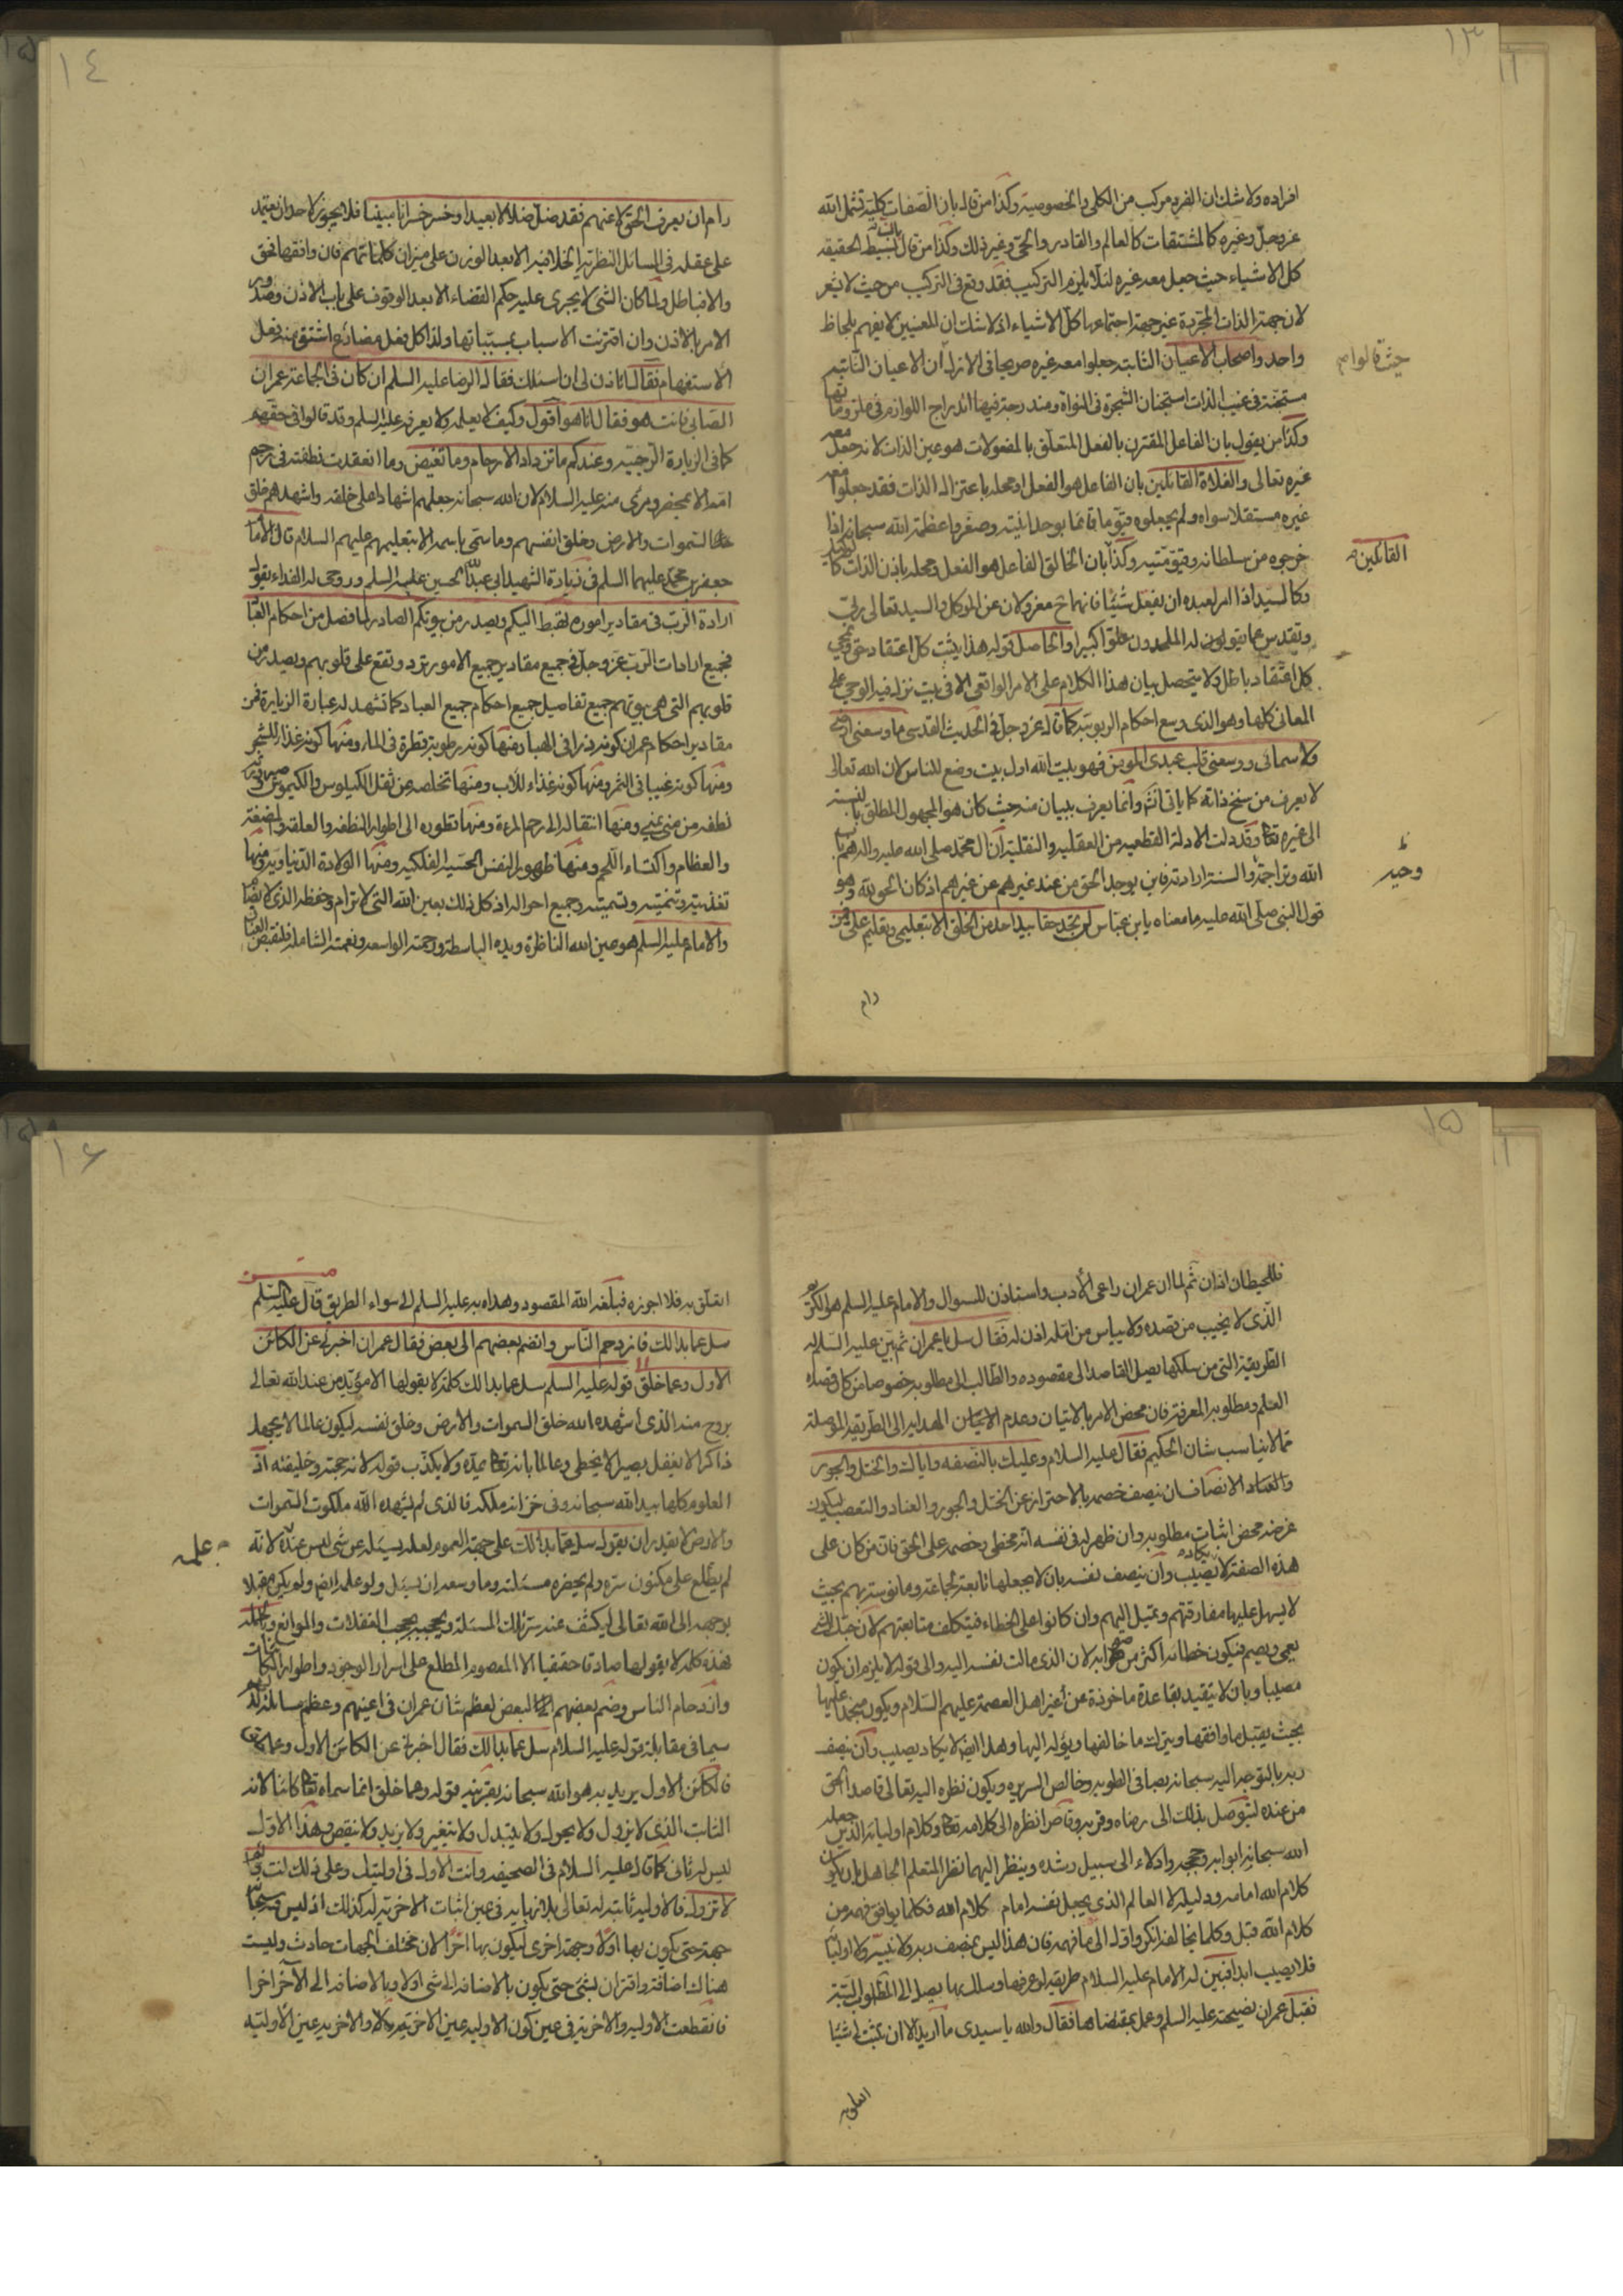 ١٣
افراده ولا شك ان الفرد مركب من الكلي والخصوصية وكذا من قال بان الصفات كلية تشمل الله
عز وجل وغيره كالمشتقات كالعالم والقادر والحي وغير ذلك وكذا من قال بان بسيط الحقيقة
كل الاشياء حيث جعل معه غيره لئلا يلزم التركيب فقد وقع في التركيب من حيث لا يشعر
لان جهة الذات المجردة غير جهة اجتماعها كل الاشياء اذ لا شك ان المعنيين لا يفهم بلحاظ
واحد واصحاب الاعيان الثابتة جعلوا معه غيره صريحا في الازل ان الاعيان الثابتة
حيث قالوا
مستجنة في غيب الذات استجنان الشجرة في النواة ومندرجة فيها اندراج اللوازم في ملزوماتها
وكذا من يقول بان الفاعل المقترن بالفعل المتعلق بالمفعولات هو عين الذات لانه جعل معه
غيره تعالى والغلاة القائلين بان الفاعل هو الفعل او محله باعتزال الذات فقد جعلوا معه
غيره مستقلا سواه ولم يجعلوه قيوما قائما بوحدانيته وصغروا عظمة الله سبحانه اذا
خرجوه من سلطانه وقيوميته وكذا بان الخالق الفاعل هو الفعل ومحله باذن الذات كالوكيل
القائلين
وكالسيد اذا امر لعبده ان يفعل شيئا فانهما ح معزولان عن الموكل والسيد تعالى ربي
وتقدس عما يقولون له الملحدون علوا كبيرا والحاصل قوله هذا يثبت كل اعتقاد حق ويمحي
كل اعتقاد باطل ولا يتحصل بيان هذا الكلام على الامر الواقعي الا في بيت نزل فيه الوحي على
المعاني كلها وهو الذي وسع احكام الربوبية كما قال عز وجل في الحديث القدسي ما وسعني ارضي
ولا سمائي ووسعني قلب عبدي المومن فهو بيت الله اول بيت وضع للناس لان الله تعالى
لا يعرف من سنخ ذاته كما ياتي انشء وانما يعرف ببيان منه حيث كان هو المجهول المطلق بالنسبة
الى غيره تعا وقد دلت الادلة القطعية من العقلية والنقلية ان ال محمد صلى الله عليه واله هم باب
الله وتراجمة والسنة ارادته فاين يوجد الحق من عند غيرهم عن غيرهم اذ كان الحق لله وهو
وحيه
قول النبي صلى الله عليه ما معناه يابن عباس لن تجد حقا بيد احد من الخلق الا بتعليمي وتعليم علي ومن
رام
١٤
رام ان يعرف الحق لا عنهم فقد ضل ضلالا بعيدا وخسر خسرانا مبينا فلا يجوز لاحد ان يعتمد
على عقله في المسائل النظرية الخلافية الا بعد الوزن على ميزان كلماتهم فان وافقها فحق
والا فباطل ولما كان الشي لا يجري عليه حكم القضاء الا بعد الوقوف على باب الاذن وصدور
الامر بالاذن وان اقترنت الاسباب بمسبباتها ولذا كل فعل مضارع اشتق منه فعل
الاستفهام فقال اتاذن لي ان اسئلك فقال الرضا عليه السلم ان كان في الجماعة عمران
الصابي فانت هو فقال انا هو اقول وكيف لا يعلمه ولا يعرفه عليه السلم وقد قالوا في حقهم
كما في الزيارة الرجبية وعندكم ما تزداد الارحام وما تغيض وما انعقدت نطفته في رحم
امه الا بمحضر ومرئى منه عليه السلام لان الله سبحانه جعلهم اشهادا على خلقه واشهدهم خلق
السموات والارض وخلق انفسهم وما سمي باسمه الا بتعليمهم عليهم السلام قال الامام
جعفر بن محمد عليهما السلم في زيارة الشهيد ابي عبد الله الحسين عليه السلم وروحي له الفداء بقوله
ارادة الرب في مقادير اموره تهبط اليكم ويصدر من بيوتكم الصادر لما فصل من احكام العباد
فجميع ارادات الرب عز وجل في جميع مقادير جميع الامور ترد وتقع على قلوبهم ويصدر من
قلوبهم التي هي بيوتهم جميع تفاصيل جميع احكام جميع العباد كما تشهد له عبارة الزيارة فمن
مقادير احكام عمران كونه ذرا في الهبا ومنها كونه رطوبة قطرة في الماء ومنها كونه غذاء للشجر
ومنها كونه غيبا في الثمر ومنها كونه غذاء للاب ومنها تخلصه عن ثقل الكيلوس والكيموس وصيرورته
نطفة من مني يمنى ومنها انتقاله الى رحم المرءة ومنها تطوره الى اطوار النطفة والعلقة والمضغة
والعظام واكتساء اللحم ومنها ظهور النفس الحسية الفلكية ومنها الولادة الدنياوية ومنها
تغذيته وتنميته وتسميته وجميع احواله اذ كل ذلك بعين الله التي لا ترام وحفظه الذي لا يضام
والامام عليه السلم هو عين الله الناظرة ويده الباسطة ورحمته الواسعة ونعمته الشاملة
١٥
ثم لما ان عمران راعى الأدب واستاذن للسوال والامام عليه السلم هو الكريم
الذي لا يخيب من قصده ولا يياس من امله اذن له فقال سل يا عمران ثم بين عليه السلم له
الطريقة التي من سلكها يصل القاصد الى مقصوده والطالب الى مطلوبه خصوصا من كان قصده
العلم ومطلوبه المعرفة فان محض الامر بالاتيان وعدم الهداية الى الطريقة الموصلة
مما لا يناسب شان الحكيم فقال عليه السلام وعليك بالنصفه واياك والختل والجور
والعناد الانصاف ان ينصف خصمه بالاحتراز عن الختل والجور والعناد والتعصب ليكون
غرضه محض اثبات مطلوبه وان ظهر له في نفسه انه مخطى وخصمه على الحق فان من كان على
هذه الصفة لا يكاد يصيب وان ينصف نفسه بان لا يجعلها تابعة لجماعة ومانوسة بهم بحيث
لا يسهل عليها مفارقتهم وتميل اليهم وان كانوا على الخطاء فيتكلف متابعتهم لان حبك للشي
يعمي ويصم فيكون خطائه اكثر من صوابه لان الذي مالت نفسه اليه والى قوله لا يلزم ان يكون
مصيبا وبان لا يتقيد بقاعدة ماخوذة عن غير اهل العصمة عليهم السلام ويكون متجمدا عليها
بحيث يقبل ما وافقها ويترك ما خالفها ويؤله اليها وهذا ايضا لا يكاد يصيب وان ينصف
ربه بالتوجه اليه سبحانه بصافي الطوية وخالص السريرة ويكون نظره اليه تعالى قاصدا الحق
من عنده ليتوصل بذلك الى رضاه وقربه وقاصرا نظره الى كلامه تعا وكلام اوليائه الذين جعلهم
الله سبحانه ابوابه وحججه وادلاء الى سبيل رشده وينظر اليهما نظر المتعلم الجاهل بان يكون
كلام الله امامه ودليله لا العالم الذي يجعل نفسه امام كلام الله فكلما يوافق فهمه من
كلام الله قبل وكلما يخالفه انكر واوله الى ما فهمه فان هذا ليس بمنصف ربه ولا نبيه ولا اوليائه
فلا يصيب ابدا فبين له الامام عليه السلام طريقة لو عرفها وسلك بها يصل الى المطلوب البتة
فقبل عمران نصيحته عليه السلم وعمل بمقتضاها فقال والله يا سيدي ما اريد الا ان تثبت لي شيئا
اتعلق به
١٦
اتعلق به فلا اجوزه فبلغه الله المقصود وهداه به عليه السلم الى سواء الطريق قال عليه السلم
سل عما بدالك فازدحم الناس وانضم بعضهم الى بعض فقال عمران اخبرني عن الكائن
الاول وعما خلق قوله عليه السلم سل عما بدالك كلمة لا يقولها الا مؤيد من عند الله تعالى
بروح منه الذي اشهده الله خلق السموات والارض وخلق نفسه ليكون عالما لا يجهل
ذاكرا لا يغفل بصيرا لا يخطي وعالما بانه تعا يمده ولا يكذب قوله لانه حجته وخليفته اذ
العلوم كلها بيد الله سبحانه وفي خزائن ملكه فالذي لم يشهده الله ملكوت السموات
والارض لا يقدر ان يقول سل عما بدالك على جهة العموم لعله يسئله عن شي ليس عنده لانه
علمه
لم يطلع على مكنون سره ولم يحضره مسئلته وما وسعه ان يسئل ولو علمه ايضا ولم يكن مقبلا
بوجهه الى الله تعالى ليكشف عنه ستر تلك المسئلة ويحجبه بحجب الغفلات والموانع وبالجملة
فهذه كلمة لا يقولها صادقا حقيقيا الا المعصوم المطلع على اسرار الوجود واطوار الكائنات
وازدحام الناس وضم بعضهم الى البعض لعظم شان عمران في اعينهم وعظم مسائله لديهم
سيما في مقابلة قوله عليه السلام سل عما بدالك فقال اخبرني عن الكائن الاول وعما خلق
فالكائن الاول يريد به هو الله سبحانه بقرينة قوله وعما خلق انما سماه تعا كائنا لانه
الثابت الذي لا يزول ولا يحول ولا يتبدل ولا يتغير ولا يزيد ولا ينقص وهذا الاول
ليس له ثاني كما قال عليه السلام في الصحيفة وانت الاول في اوليتك وعلى ذلك انت دائم
لا تزول فالاولية ثابتة له تعالى بلا نهاية في عين اثبات الاخرية له كذلك اذ ليس سبحانه
جهة حتى يكون بها اولا وجهة اخرى ليكون بها اخرا لان مختلف الجهات حادث وليست
هناك اضافة واقتران بشئ حتى يكون بالاضافة الى شي اولا وبالاضافة الى الآخر اخرا
فانقطعت الاولية والاخرية في عين كون الاولية عين الاخرية والاخرية عين الاولية